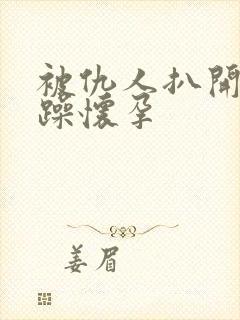 被仇人扒開
躁懷孕
姜眉